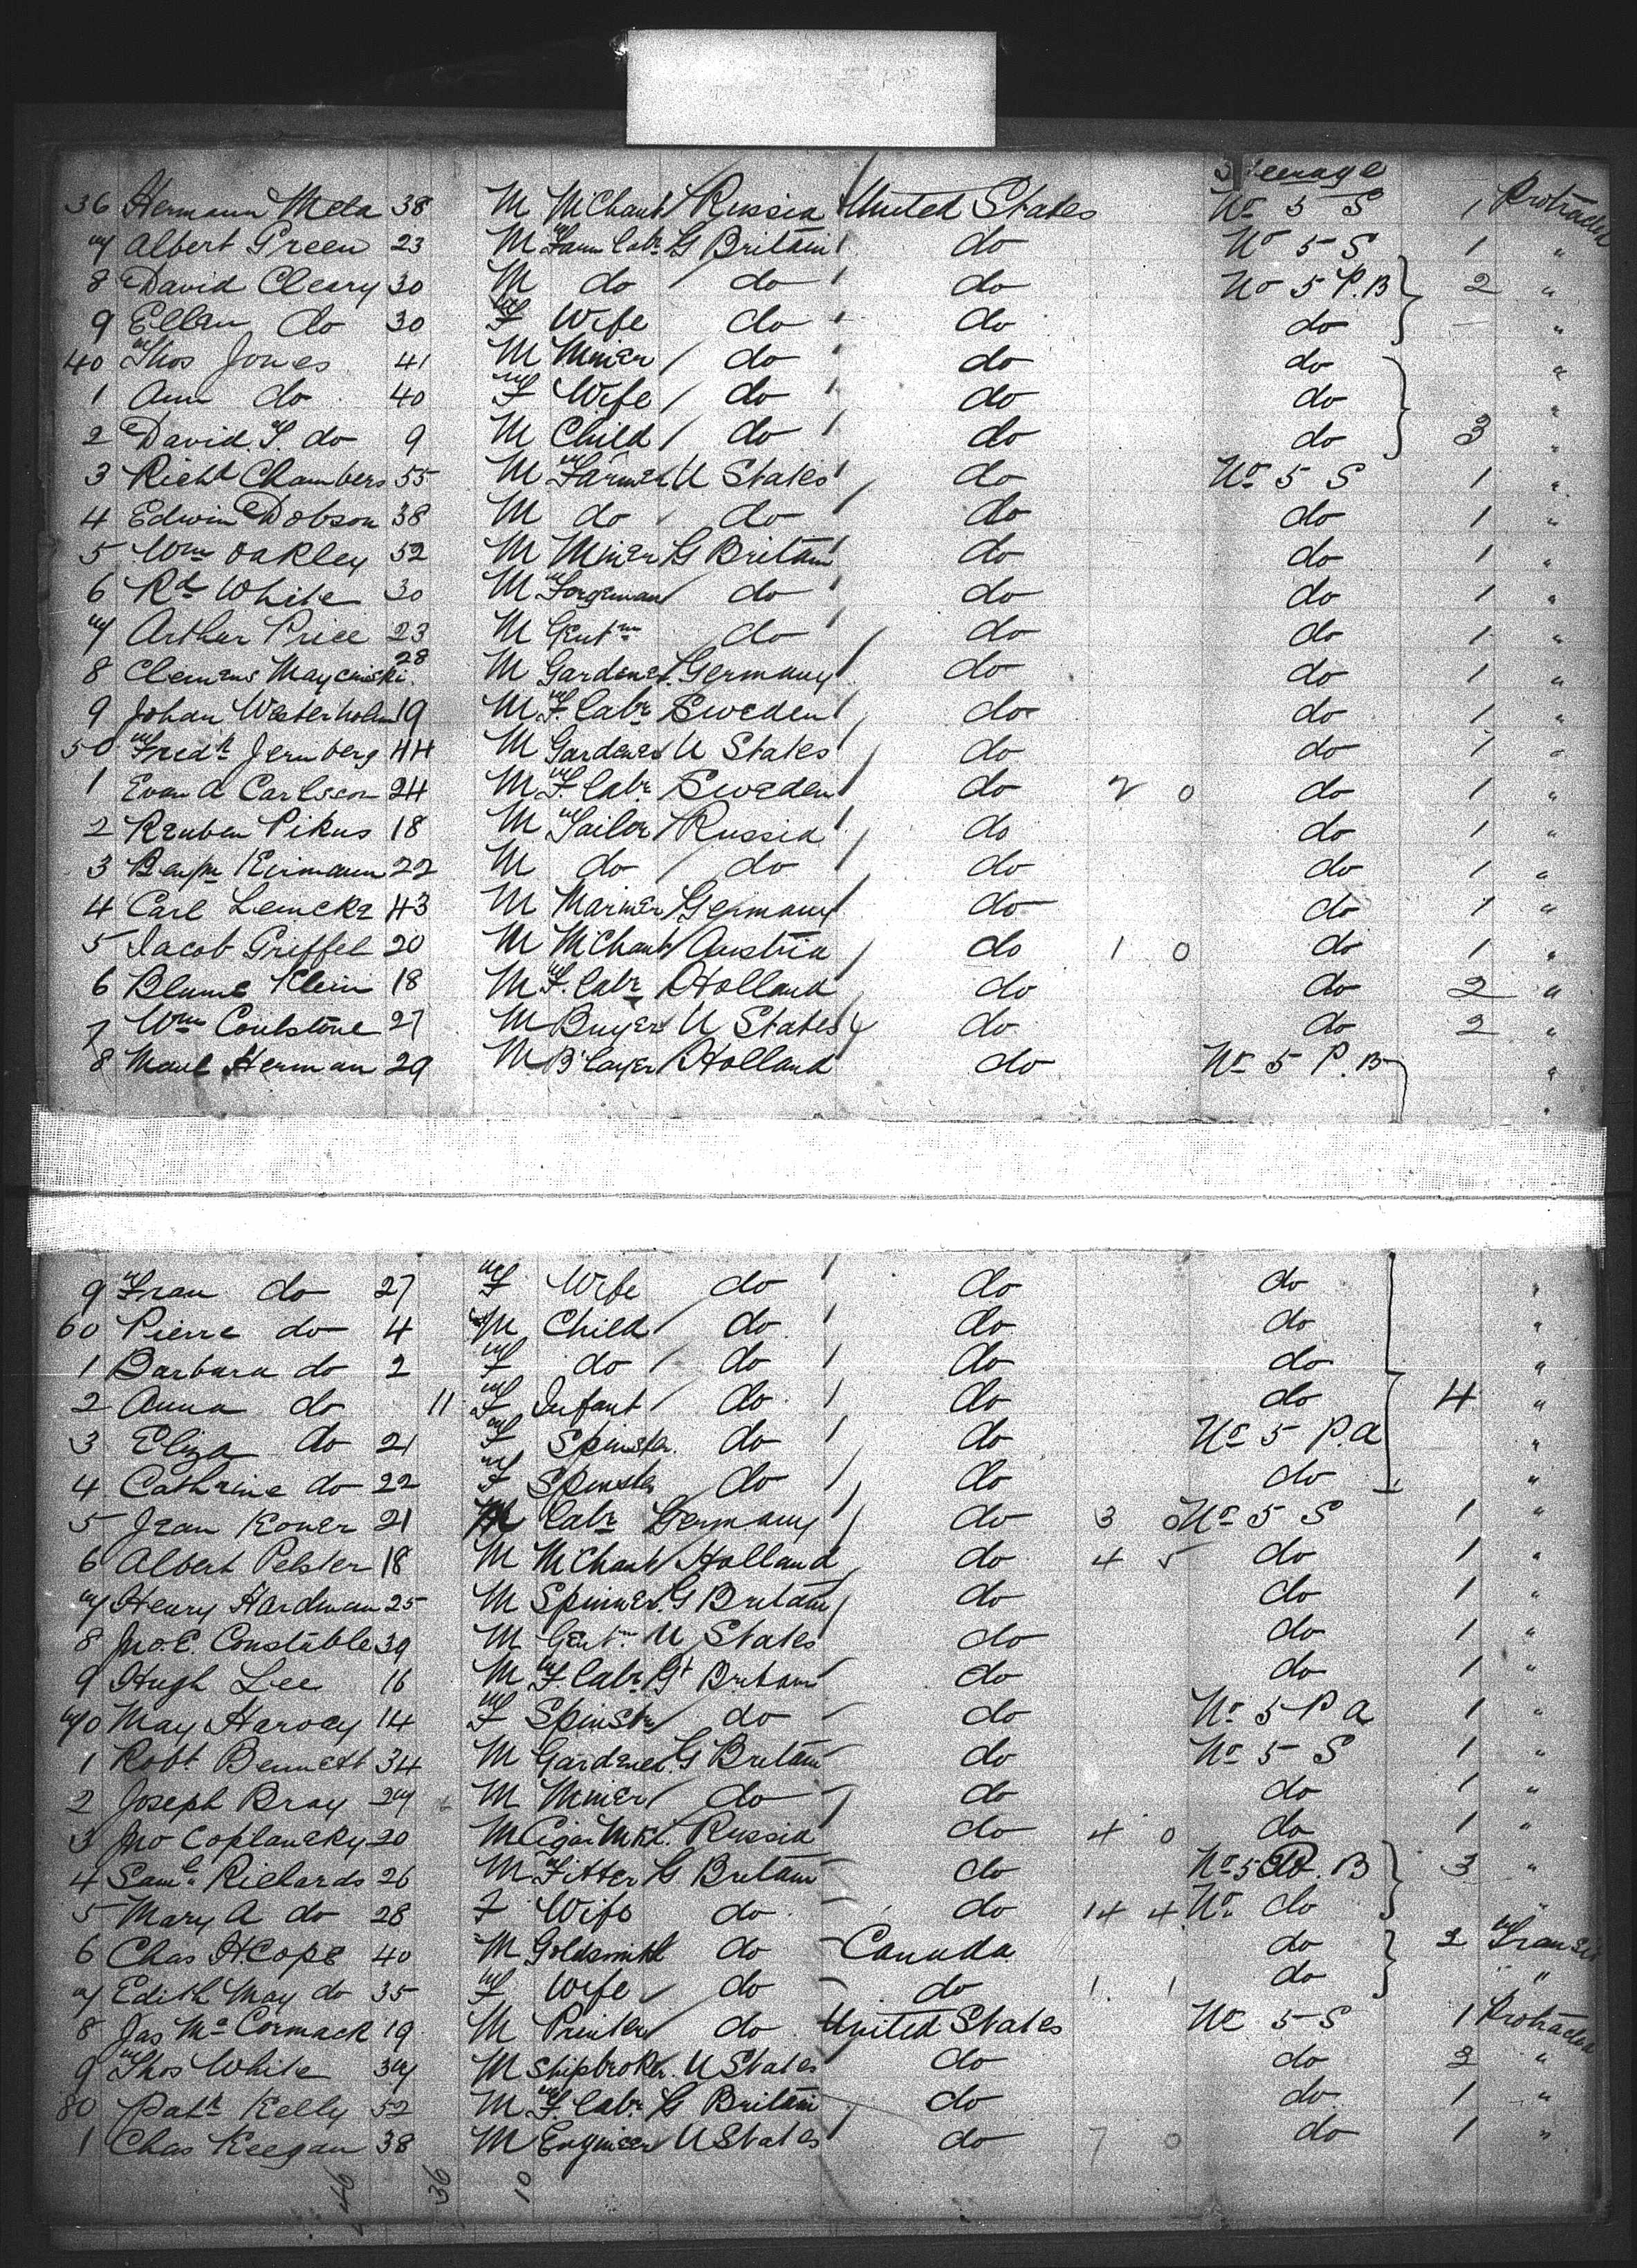 Steerage
36 Hermann Meta 38 M MChant Russia United States No 5 S 1 Protracted
7 Albert Green 23 M Farm Labr G Britain do No 5 S 1 "
8 David Cleary 30 M do do do No 5 P.B 2 "
9 Ellen do 30 F Wife do do do "
40 Thos Jones 41 M Miner do do do "
1 Ann do 40 F Wife do do do "
2 David. T. do 9 M Child do do do 3 "
3 Richd Chambers 55 M Farmer U States do No 5 S 1 "
4 Edwin Dobson 38 M do do do do 1 "
5 Wm Oakley 52 M Miner G Britain do do 1 "
6 Rd White 30 M Forgeman do do do 1 "
7 Arthur Price 23 M Gentn do do do 1 "
8 Clemens 28 M Gardener Germany do do 1 "
9 Johan Westerholm 19 M F. Labr Sweden do do 1 "
50 Fredk Jernberg 44 M Gardener U States do do 1 "
1 Evan A Carlsson 24 M F. Labr Sweden do 2 0 do 1 "
2 Reuben Pikus 18 M Tailor Russia do do 1 "
3 Benjn Kirmann 22 M do do do do 1 "
4 Carl Lemcke 43 M Mariner Germany do do 1 "
5 Jacob Griffel 20 M MChant Austria do 1 0 do 1 "
6 Blume Klein 18 M F. Labr Holland do do 2 "
7 Wm Coulstone 27 M Buyer U States do do 2 "
8 Herman 29 M B'layer Holland do No 5 P.B "
9 Frau do 27 F Wife do do do "
60 Pierre do 4 M Child do do do "
1 Barbara do 2 F do do do do "
2 Anna do 11 F Infant do do do 4 "
3 Eliza do 21 F Spinster do do No 5 P.A "
4 Cathrine do 22 F Spinster do do do "
5 Jean Koner 21 M Labr Germany do 3 0 No 5 S 1 "
6 Albert Pelster 18 M MChant Holland do 4 5 do 1 "
7 Henry Hardman 25 M Spinner G Britain do do 1 "
8 Jno. E. Constable 39 M Gentn U States do do 1 "
9 Hugh Lee 16 M F Labr Gt Britain do do 1 "
70 May Harvey 14 F Spinstr do do No 5 P A 1 "
1 Robt Bennett 34 M Gardener G Britain do No 5 S 1 "
2 Joseph Bray 27 M Miner do do do 1 "
3 Jno Coplansky 20 M Cigar Mkr. Russia do 4 0 do 1 "
4 Saml Richards 26 M Fitter G Britain do No 5 P. B 3 "
5 Mary A do 28 F Wife do do 14 4 No do "
6 Chas H. Cope 40 M Goldsmith do Canada do 2 Transit
7 Edith May do 35 F Wife do do 1 1 do "
8 Jas McCormack 19 M Printer do United States No 5 S 1 Protracted
9 Thos White 37 M Shipbroker. U States do do 2 "
80 Patk Kelly 52 M F. Labr G Britain do do 1 "
1 Chas Keegan 38 M Engineer U States do 7 0 do 1 "